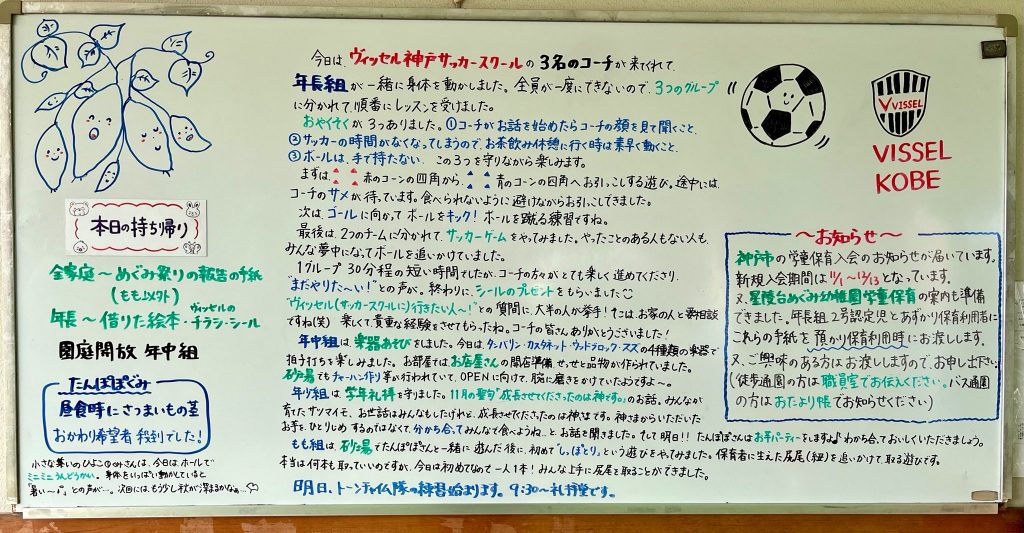 本日の持ち帰り
全家庭〜めぐみ祭りの報告の手紙
(もも以外)
年長〜借りた絵本・ヴィッセルのチラシ・シール
園庭開放 年中組
たんぽぽぐみ
昼食時にさつまいもの茎
おかわり希望者 殺到でした!
小さな集いのひよこのみさんは、今日は、ホールで
ミニミニうんどうかい。身体をいっぱい動かしていると
「暑い〜!」との声が…。次回には、もう少し秋が深まるかなぁ…
今日は、ヴィッセル神戸サッカースクールの3名のコーチが来てくれて、
年長組が一緒に身体を動かしました。全員が一度にできないので、3つのグループ
に分かれて、順番にレッスンを受けました。
おやくそくが3つありました。①コーチがお話を始めたらコーチの顔を見て聞くこと、
②サッカーの時間がなくなってしまうので、お茶飲み休憩に行く時は素早く動くこと、
③ボールは、手で持たない。この3つを守りながら楽しみます。
まずは、赤のコーンの四角から、青のコーンの四角へお引っこしする遊び。途中には、
コーチのサメが待っています。食べられないように避けながらお引っこしできました。
次は、ゴールに向かってボールをキック!ボールを蹴る練習ですね。
最後は、2つのチームに分かれて、サッカーゲームをやってみました。やったことのある人もない人も、
みんな夢中になってボールを追いかけていました。
1グループ30分程の短い時間でしたが、コーチの方々がとても楽しく進めてくださり、
"まだやりた〜い!"との声が。終わりに、シールのプレゼントをもらいました
"ヴィッセル(サッカースクールに)行きたい人〜!"との質問に、大半の人が挙手!?こは、お家の人と要相談
ですね(笑) 楽しくて、貴重な経験をさせてもらったね。コーチの皆さんありがとうございました!
年中組は、楽器あそびをしました。今日は、タンバリン・カスタネット・ウッドブロック・スズの4種類の楽器で
拍子打ちを楽しみました。お部屋では、お店屋さんの開店準備。せっせと品物が作られていました。
砂場でもチャーハン作り等が行われていて、OPENに向けて、腕に磨きをかけていたようですよ〜。
年少組は、学年礼拝を守りました。11月の聖句「成長させてくださったのは神です。」のお話。みんなが
育てたサツマイモ、お世話はみんなもしたけれど、成長させてくださったのは神さまです。神さまからいただいた
お芋を、ひとりじめするのではなくて、分かち合ってみんなで食べようね…と、お話を聞きました。そして明日!! たんぽぽさんはお芋パーティーをしますよ♪わかち合って、おいしくいただきましょう。
もも組は、砂場でたんぽぽさんと一緒に遊んだ後に、初めて「しっぽとり」という遊びをやってみました。保育者に生えた尻尾(紐)を追いかけて取る遊びです。
本当は何本も取っていいのですが、今日は初めてなので一人1本!みんな上手に尻尾を取ることができました。
明日、トーンチャイム隊の練習始まります。9:30〜礼拝堂です。
VISSEL
VISSEL
KOBE
〜お知らせ〜
神戸市の学童保育入会のお知らせが届いています。
新規入会期間は11/1〜12/13となっています。
又、星陵台めぐみ幼稚園学童保育の案内も準備
できました。年長組、2号認定児とあずかり保育利用者に
これらの手紙を預かり保育利用時にお渡しします。
又、ご興味のある方はお渡ししますので、お申し出下さい。
(徒歩通園の方は職員室でお伝えください。バス通園
の方はおたより帳でお知らせください)